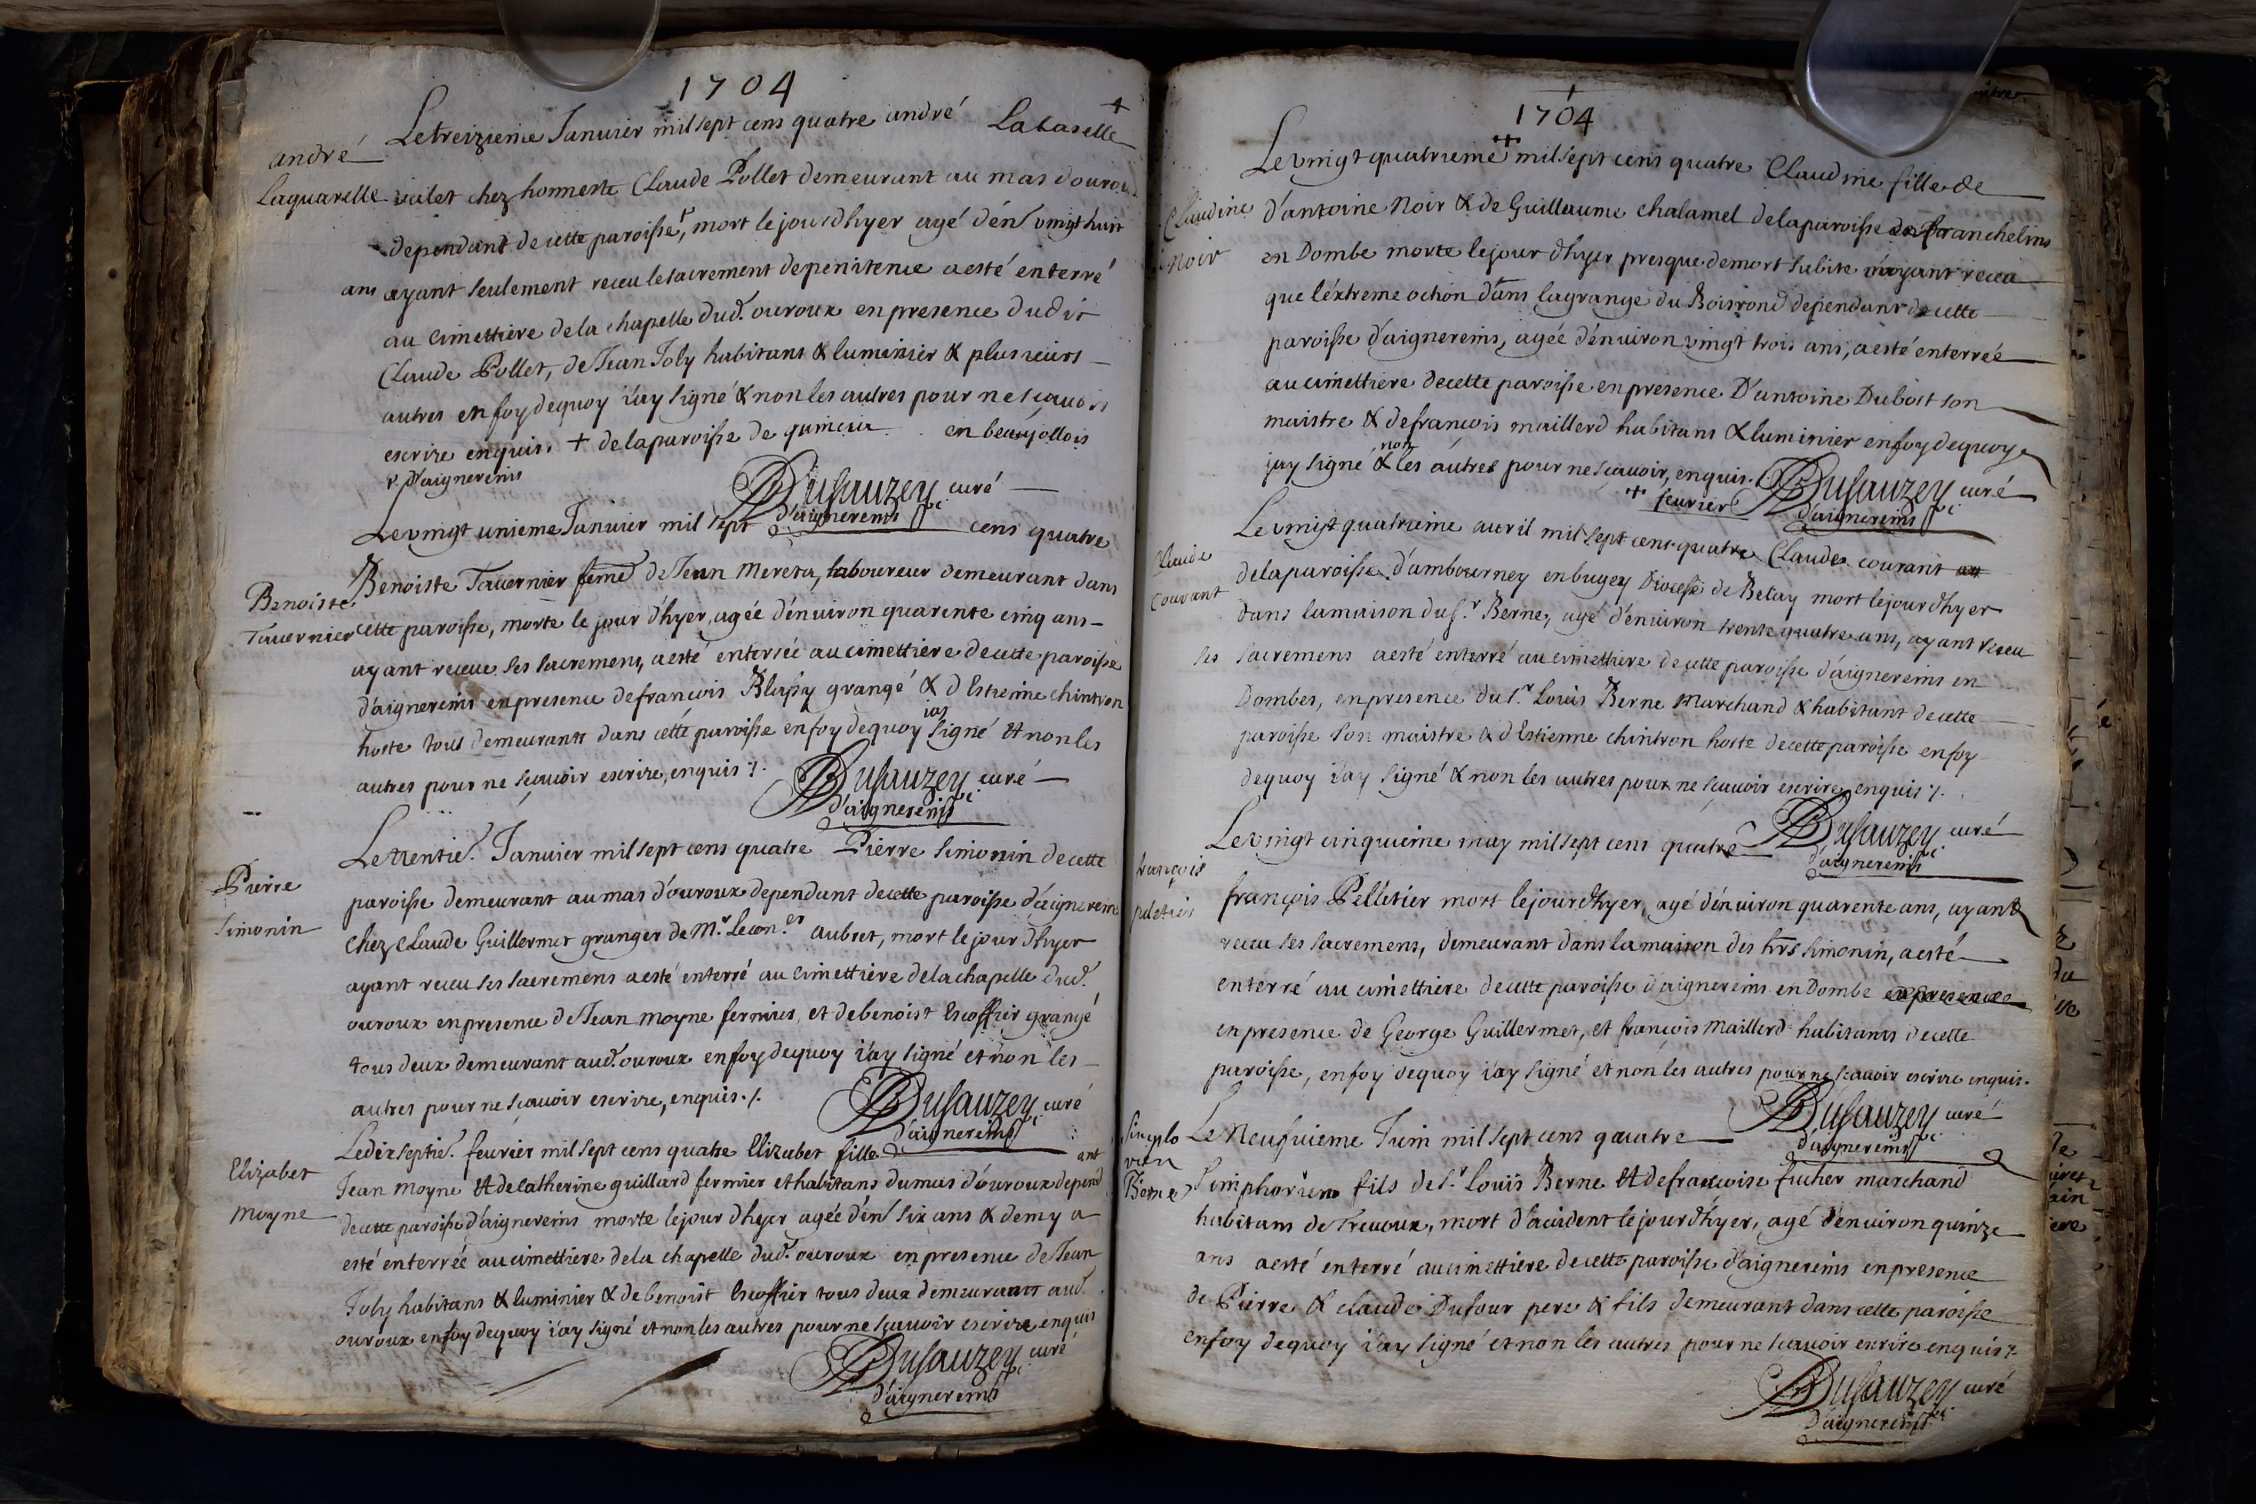 1704
Le treizieme Januier mil sept cens quatre andré Labaselle +
andré
Laquarelle
valet chez honneste Claude Pollet demeurant au mas d'ouroux
dependant de cette paroisse, mort le jour dhyer agé d'én vingt huit
ans ayant seulement receu le sacrement de penitence a esté enterré
au cimettiere de la chapelle dud. ouroux en presence dudit
Claude Pollet, de Jean Joly habitans & luminier & plusieurs
autres en foy dequoy i'ay signé & non les autres pour ne sçauoir
escrire enquis. + de la paroisse de en beaujollois
d'aignereins
Dusauzey curé
d'aignereins
Le vingt unieme Januier mil sept cens quatre
Benoiste
Tauernier
Benoiste Tauernier feme de Jean Mereta, laboureur demeurant dans
cette paroisse, morte le jour d'hyer, agée d'énuiron quarente cinq ans
ayant receue ses sacremens, a esté enterrée au cimettiere de cette paroisse
d'aignereins en presence de francois Blassy grangé & d'Estienne chintron
hoste tous demeurants dans cette paroisse en foy dequoy iay signé & non les
autres pour ne sçauoir escrire, enquis ./.
Dusauzey curé
d'aignereins
Le trentie. Januier mil sept cens quatre Pierre Simonin de cette
Pierre
Simonin
paroisse demeurant au mas d'ouroux dependant de cette paroisse d'aignereins
chez Claude Guillermet granger de Mr. Le con.er aubret, mort le jour d'hyer
ayant receu ses sacremens a esté enterré au cimettiere de la chapelle dud.
ouroux en presence de Jean moyne fermier, et de benoist Escoffier grangé
tous deux demeurant aud. ouroux en foy dequoy i'ay signé et non les
autres pour ne sçauoir escrire, enquis ./.
Dusauzey curé
d'aignereins
Le dix septie. feurier mil sept cens quatre Elizabet fille
Elizabet
moyne
Jean moyne & de Catherine guillard fermier et habitans du mas d'ouroux dependant
de cette paroisse d'aignereins morte le jour dhyer agée d'én six ans & demy a
esté enterrée au cimettiere de la chapelle dud. ouroux en presence de Jean
Joly habitans & luminier & de benoist Escoffier tous deux demeurants aud.
ouroux en foy dequoy i'ay signé et non les autres pour ne sçauoir escrire enquis
Dusauzey curé
d'aignereins
1704
Le vingt quatrieme ++ mil sept cens quatre Claudine fille de
Claudine
Noir
d'antoine Noir & de Guillaume chalamel de la paroisse de franchelins
en Dombe morte le jour dhyer presque de mort subite n'ayant receu
que l'éxtreme oction dans la grange du Boisrond dependant de cette
paroisse d'aignereins, agée d'énuiron vingt trois ans, a esté enterrée
au cimettiere de cette paroisse en presence D'antoine Dubost son
maistre & de francois maillerd habitans & luminier en foy dequoy
jay signé & non les autres pour ne sçauoir, enquis.
++ feurier
Dusauzey curé
d'aignereins
Le vingt quatrieme auril mil sept cens quatre Claude courant
Claude
Courant
de la paroisse d'ambourney en bugey Diocese de Belay mort le jour dhyer
dans la maison du sr. Berne, agé d'énuiron trente quatre ans, ayant receu
ses sacremens a esté enterré au cimettiere de cette paroisse d'aignereins en
Dombes, en presence du sr. Louis Berne marchand & habitant de cette
paroisse son maistre & d'Estienne chintron hoste de cette paroisse en foy
dequoy i'ay signé & non les autres pour ne sçauoir escrire, enquis ./.
Dusauzey curé
d'aignereins
Le vingt cinquieme may mil sept cens quatre
françois
peletier
françois Pelletier mort le jour dhyer, agé d'énuiron quarente ans, ayant
receu ses sacremens, demeurant dans la maison des hrs simonin, a esté
enterré au cimettiere de cette paroisse d'aignereins en Dombe en presence
en presence de George Guillermet, et françois Maillerd habitants de cette
paroisse, en foy dequoy i'ay signé et non les autres pour ne sçauoir escrire enquis.
Dusauzey curé
d'aignereins
Le Neufuieme Juin mil sept cens quatre
Simpho
rien
Berne
Simphorien fils de sr. Louis Berne & de francoise fucher marchand
habitans de Treuoux, mort d'accident le jour dhyer, agé d'enuiron quinze
ans a esté enterré au cimettiere de cette paroisse d'aignereins en presence
de Pierre & claude Dufour pere & fils demeurant dans cette paroisse
en foy dequoy i'ay signé et non les autres pour ne sçauoir escrire enquis ./.
Dusauzey curé
d'aignereins